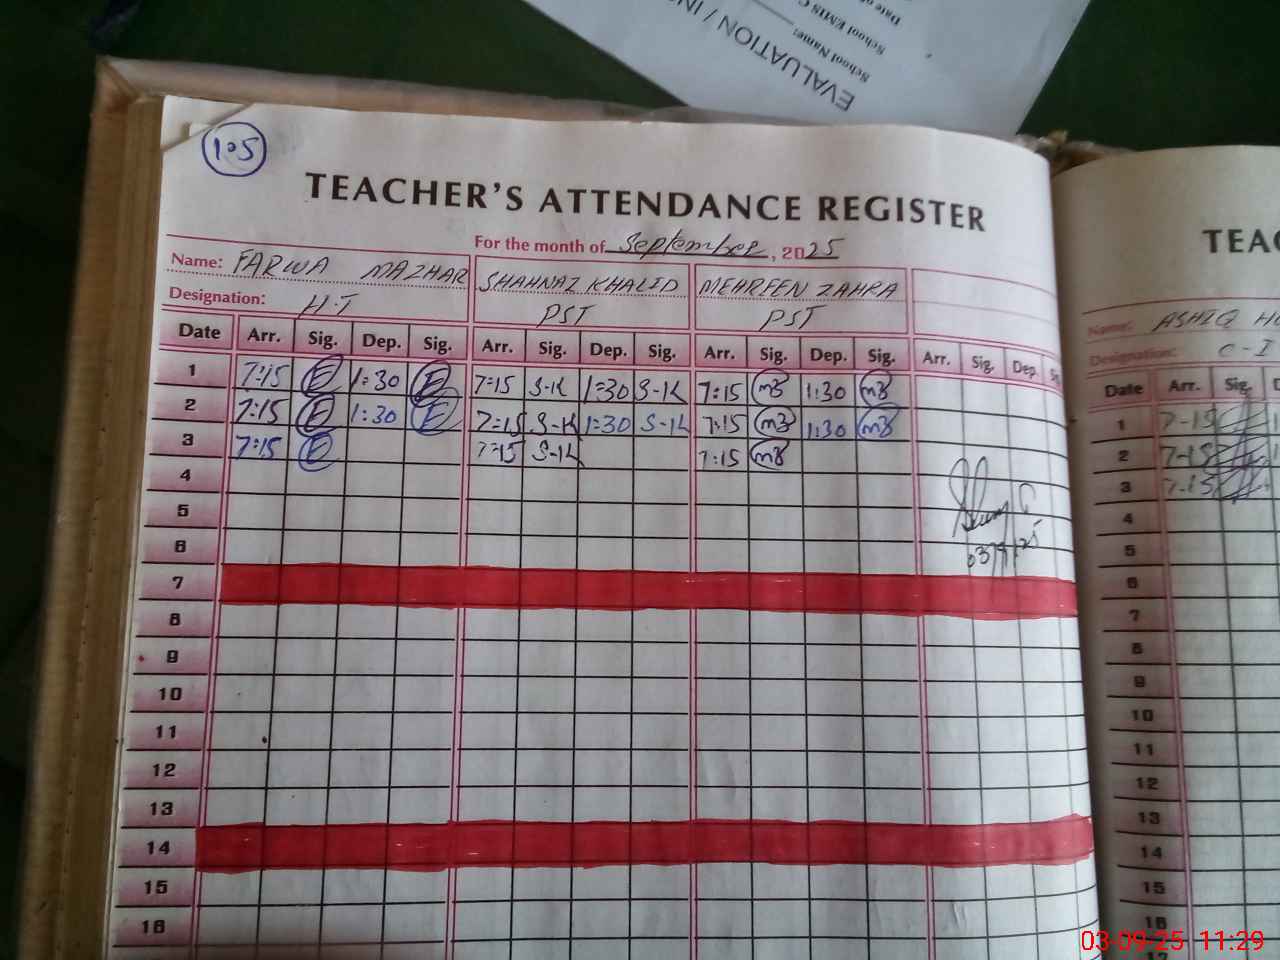 EVALUATION / IN
School Name:
School EMIS C
Date of
105
TEACHER'S ATTENDANCE REGISTER
For the month of September, 2025
Name: FARWA MAZHAR SHAHNAZ KHALID MEHREEN ZAHRA
Designation: H.T PST PST
Date Arr. Sig. Dep. Sig. Arr. Sig. Dep. Sig. Arr. Sig. Dep. Sig. Arr. Sig. Dep. Si
1 7:15 F 1:30 F 7:15 S-K 1:30 S-K 7:15 MZ 1:30 MZ
2 7:15 F 1:30 F 7:15 S-K 1:30 S-K 7:15 MZ 1:30 MZ
3 7:15 F 7:15 S-K 7:15 MZ
4
5
6
03/9/25
7
8
9
10
11
12
13
14
15
16
TEAC
Name: ASHIQ HU
Designation: C-I
Date Arr. Sig. D
1 7-15 1
2 7-15 1
3 7-15
4
5
6
7
8
9
10
11
12
13
14
15
16
17
03-09-25 11:29